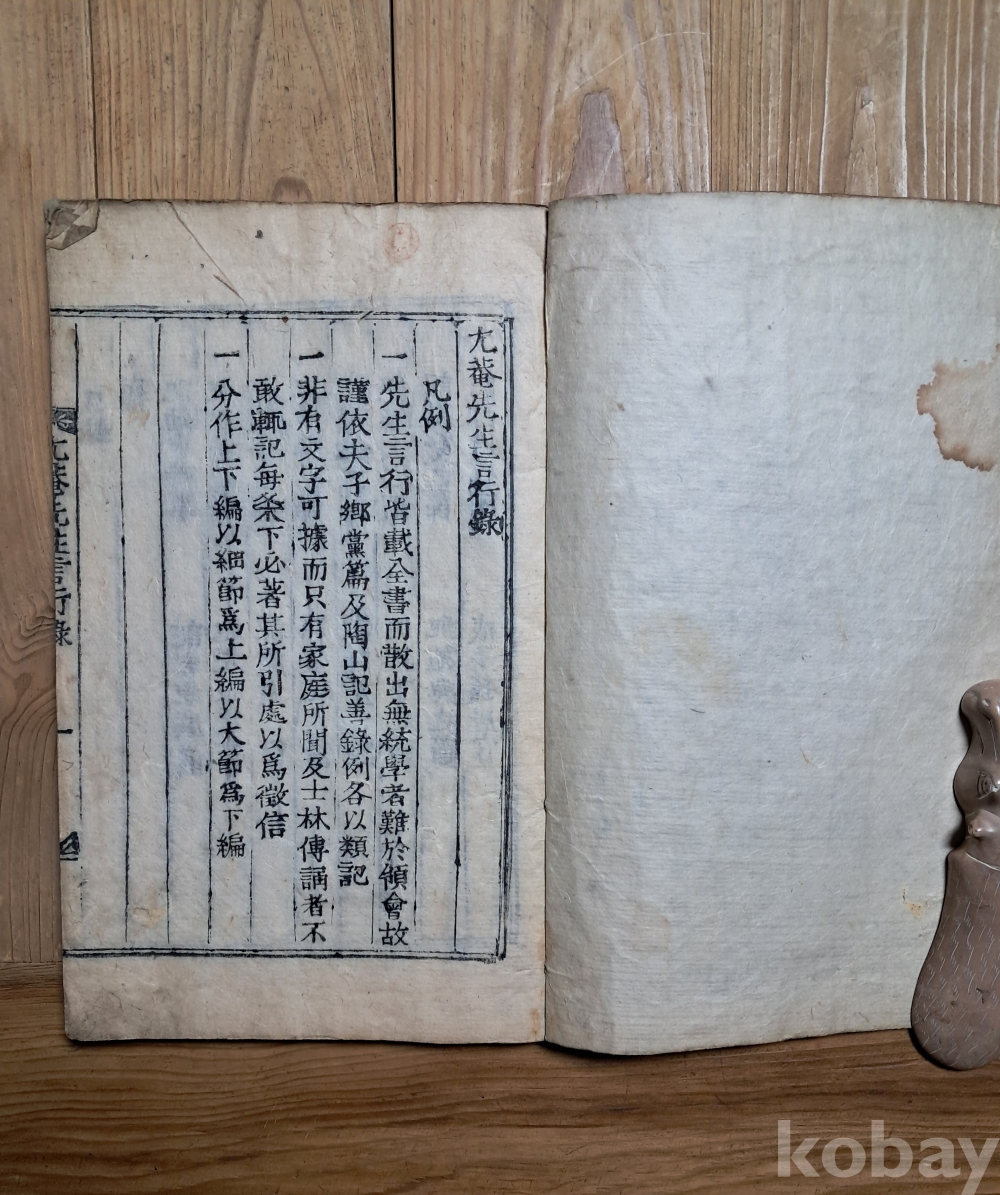 尤菴先生言行錄
凡例
一先生言行皆載全書而散出無統學者難於領會故
謹依夫子鄉黨篇及陶山記善錄例各以類記
一非有文字可據而只有家庭所聞及士林傳誦者不
敢輒記每条下必著其所引處以爲徵信
一分作上下編以細節爲上編以大節爲下編
尤菴先生言行錄
一
kobay